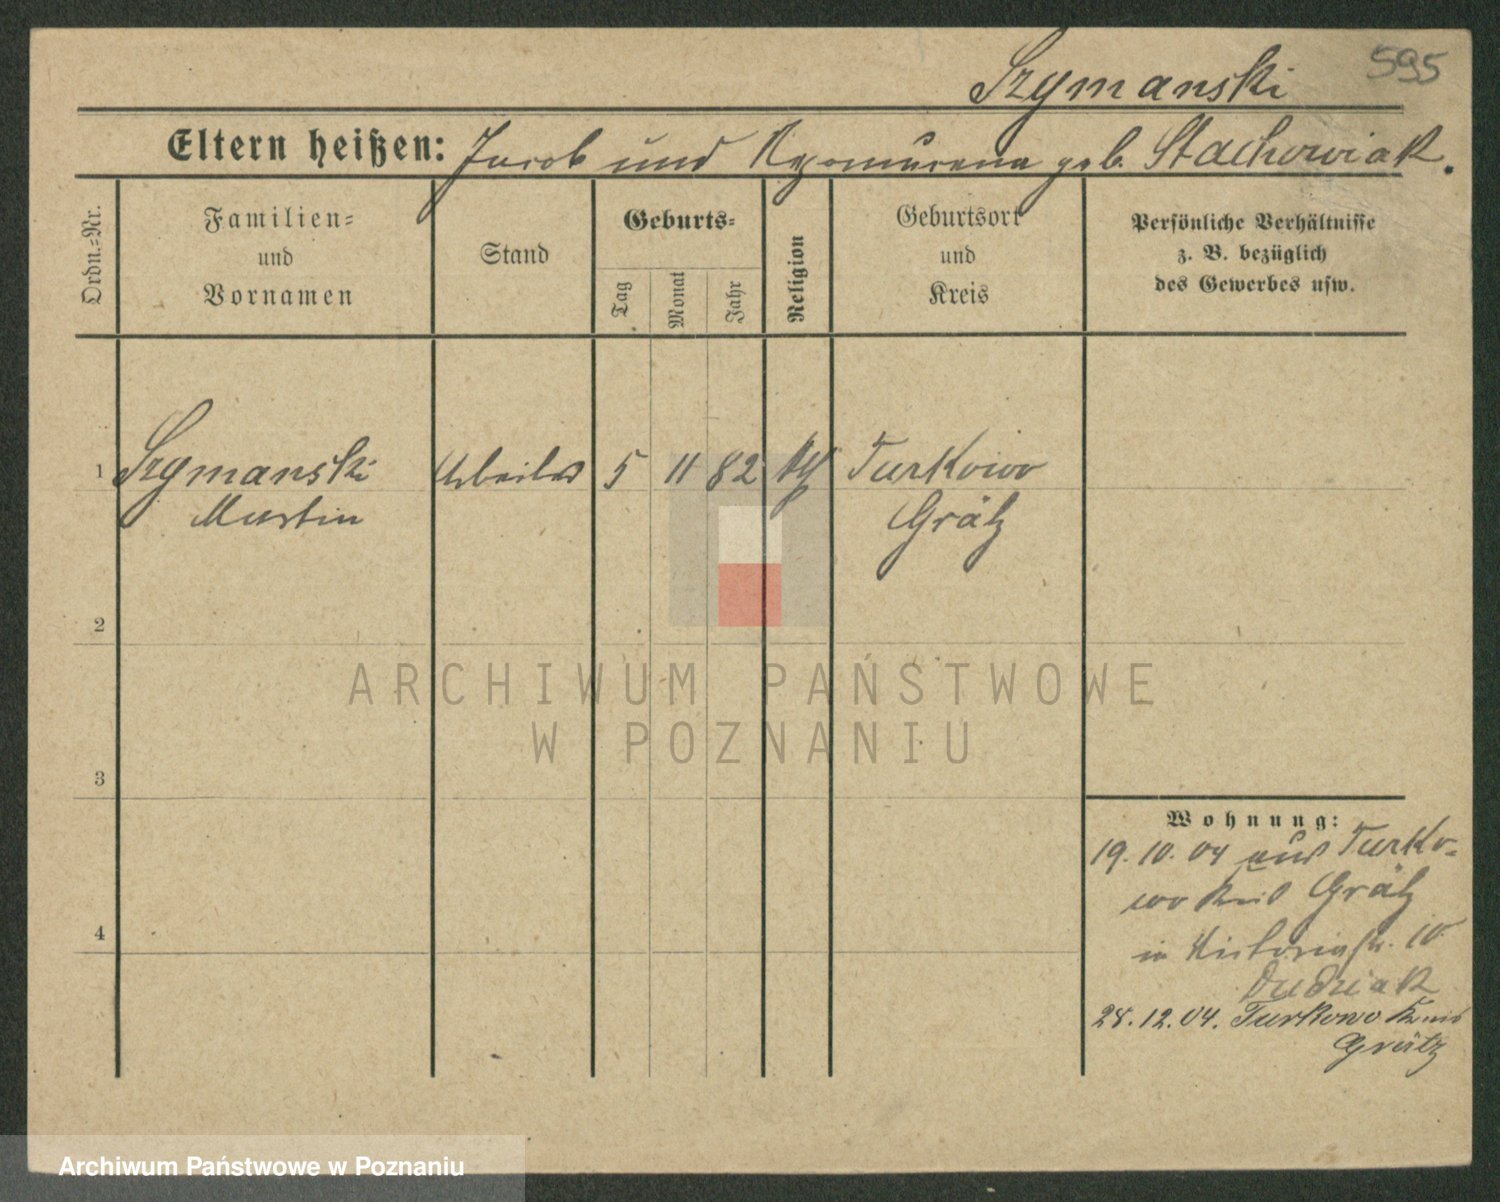 595
Szymanski
Eltern heißen: Jacob und geb. Stachowiak.
Ordn.=Nr.
Familien=
und
Vornamen
Stand
Geburts=
Tag
Monat
Jahr
Religion
Geburtsort
und
Kreis
Persönliche Verhältnisse
z. B. bezüglich
des Gewerbes usw.
1 Szymanski Arbeiter 5 11 82 Turkowo
Martin Grätz
2
3
4
Wohnung:
19.10.04 aus Turko-
wo Kreis Grätz
in Victoriastr. 10
Dudziak
28.12.04. Turkowo Kreis
Grätz
ARCHIWUM PAŃSTWOWE
W POZNANIU
Archiwum Państwowe w Poznaniu